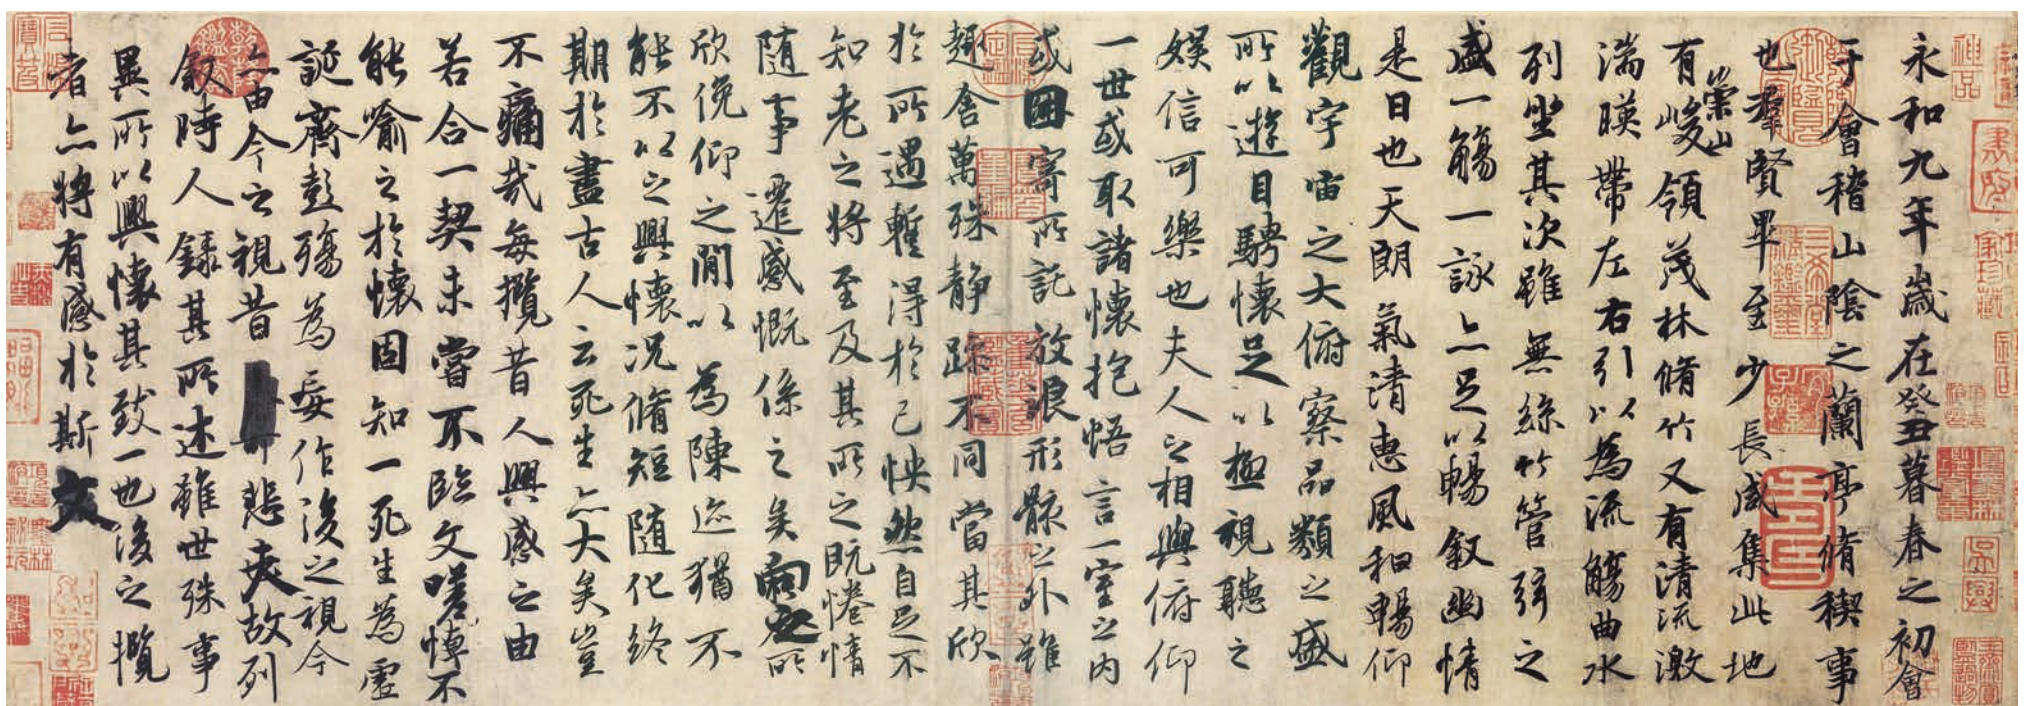 永和九年歲在癸丑暮春之初會
于會稽山陰之蘭亭脩稧事
也羣賢畢至少長咸集此地
有崇山峻領茂林脩竹又有清流激
湍暎帶左右引以為流觴曲水
列坐其次雖無絲竹管弦之
盛一觴一詠亦足以暢敘幽情
是日也天朗氣清惠風和暢仰
觀宇宙之大俯察品類之盛
所以遊目騁懷足以極視聽之
娛信可樂也夫人之相與俯仰
一世或取諸懷抱悟言一室之內
或因寄所託放浪形骸之外雖
趣舍萬殊靜躁不同當其欣
於所遇暫得於己怏然自足不
知老之將至及其所之既惓情
隨事遷感慨係之矣向之所
欣俛仰之閒以為陳迹猶不
能不以之興懷況脩短隨化終
期於盡古人云死生亦大矣豈
不痛哉每攬昔人興感之由
若合一契未嘗不臨文嗟悼不
能喻之於懷固知一死生為虛
誕齊彭殤為妄作後之視今
亦由今之視昔悲夫故列
敘時人錄其所述雖世殊事
異所以興懷其致一也後之攬
者亦將有感於斯文
神品